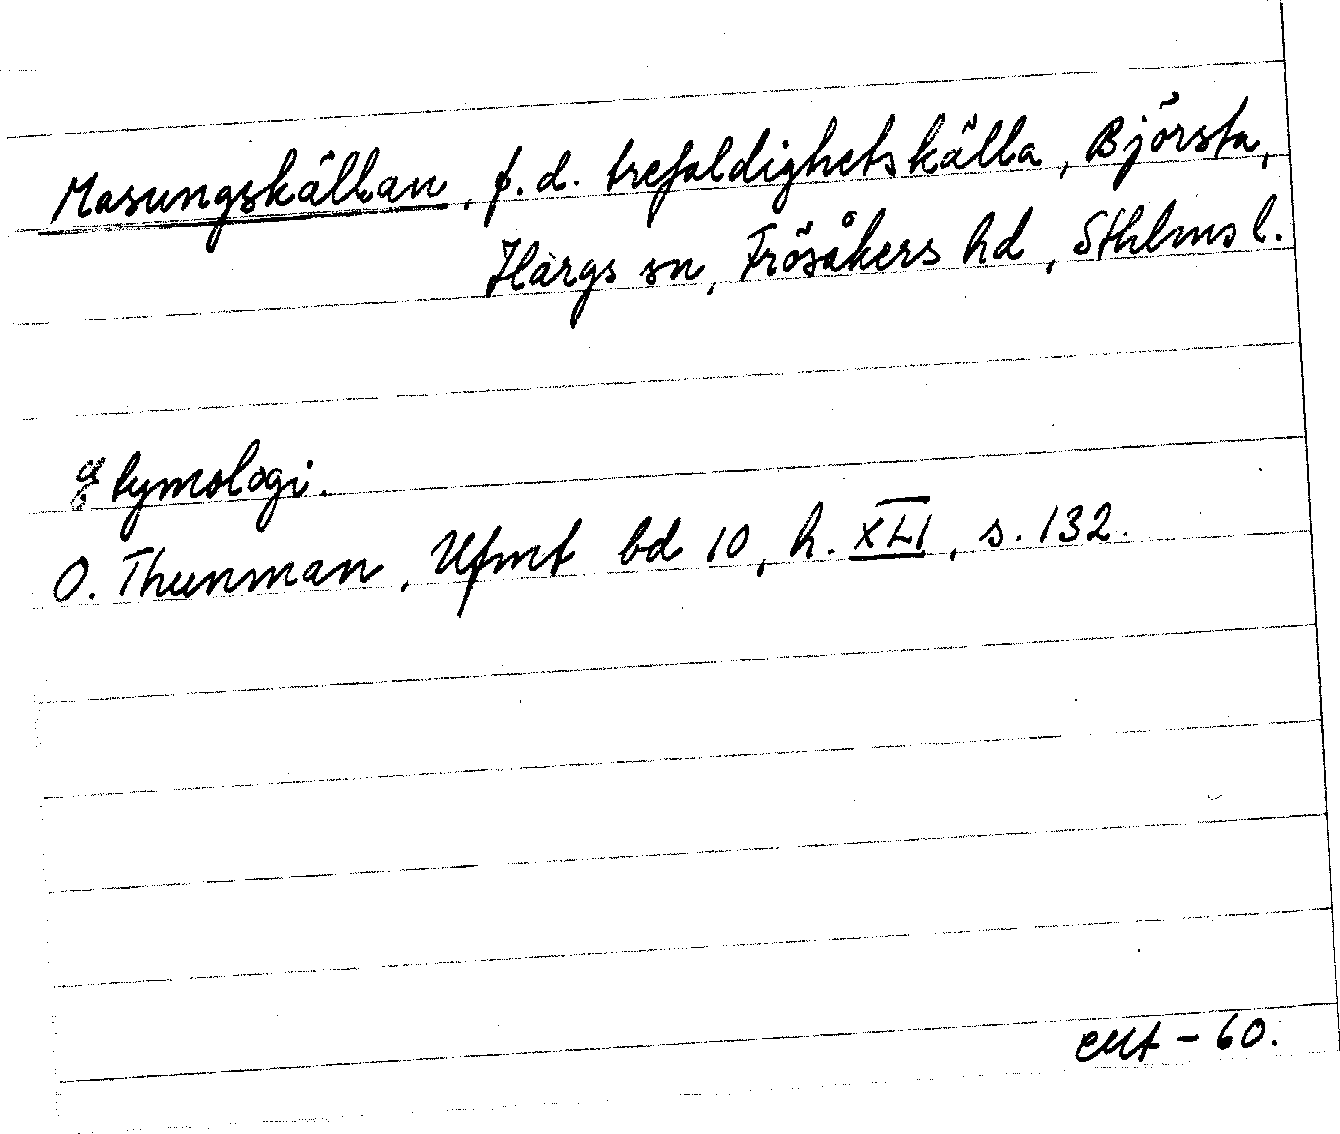 Masungskällan, f.d. trefaldighetskälla, Björsta,
Hargs sn, Frösåkers hd, Sthlms l.
Etymologi.
O. Thunman, Ufmt bd 10, h. XLI, s. 132.
- 60.